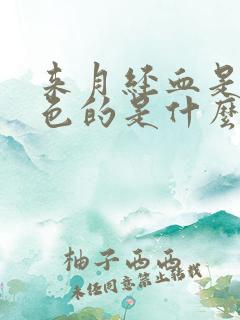 来月经血是
色的是什么
柚子西西
未经同意禁止转载